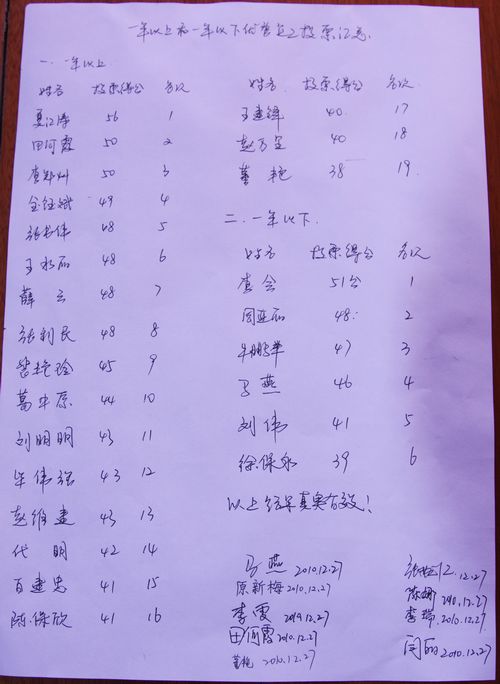 一年以上和一年以下优营员之投票汇总
一. 一年以上
姓名 投票得分 名次
夏江涛 56 1
田何霞 50 2
李郑州 50 3
49 4
张书伟 48 5
王永丽 48 6
薛云 48 7
张利民 48 8
艳玲 45 9
葛中原 44 10
刘明明 43 11
毕伟强 43 12
赵维建 43 13
代明 42 14
百建忠 41 15
陈保欣 41 16
姓名 投票得分 名次
王建锋 40 17
赵万里 40 18
董艳 38 19
二. 一年以下
姓名 投票得分 名次
李会 51分 1
周亚丽 48 2
牛鹏举 47 3
马燕 46 4
刘伟 41 5
徐保永 39 6
以上结果真实有效!
马燕 2010.12.27
原新梅 2010.12.27
李雯 2010.12.27
田何霞 2010.12.27
董艳 2010.12.27
12.12.27
陈娜 2010.12.27
李瑞 2010.12.27
闫丽 2010.12.27